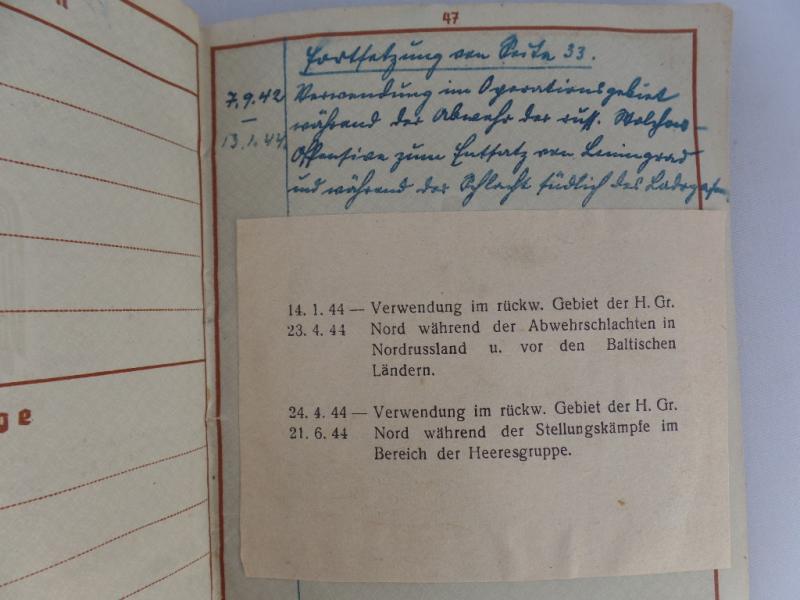 47
Fortsetzung von Seite 33.
7.9.42 Verwendung im Operationsgebiet
— während der Abwehr der russ. Wolchow-
13.1.44. Offensive zum Entsatz von Leningrad
und während der Schlacht südlich des Ladogasees
14. 1. 44 — Verwendung im rückw. Gebiet der H. Gr.
23. 4. 44 Nord während der Abwehrschlachten in
Nordrussland u. vor den Baltischen
Ländern.
24. 4. 44 — Verwendung im rückw. Gebiet der H. Gr.
21. 6. 44 Nord während der Stellungskämpfe im
Bereich der Heeresgruppe.
ge